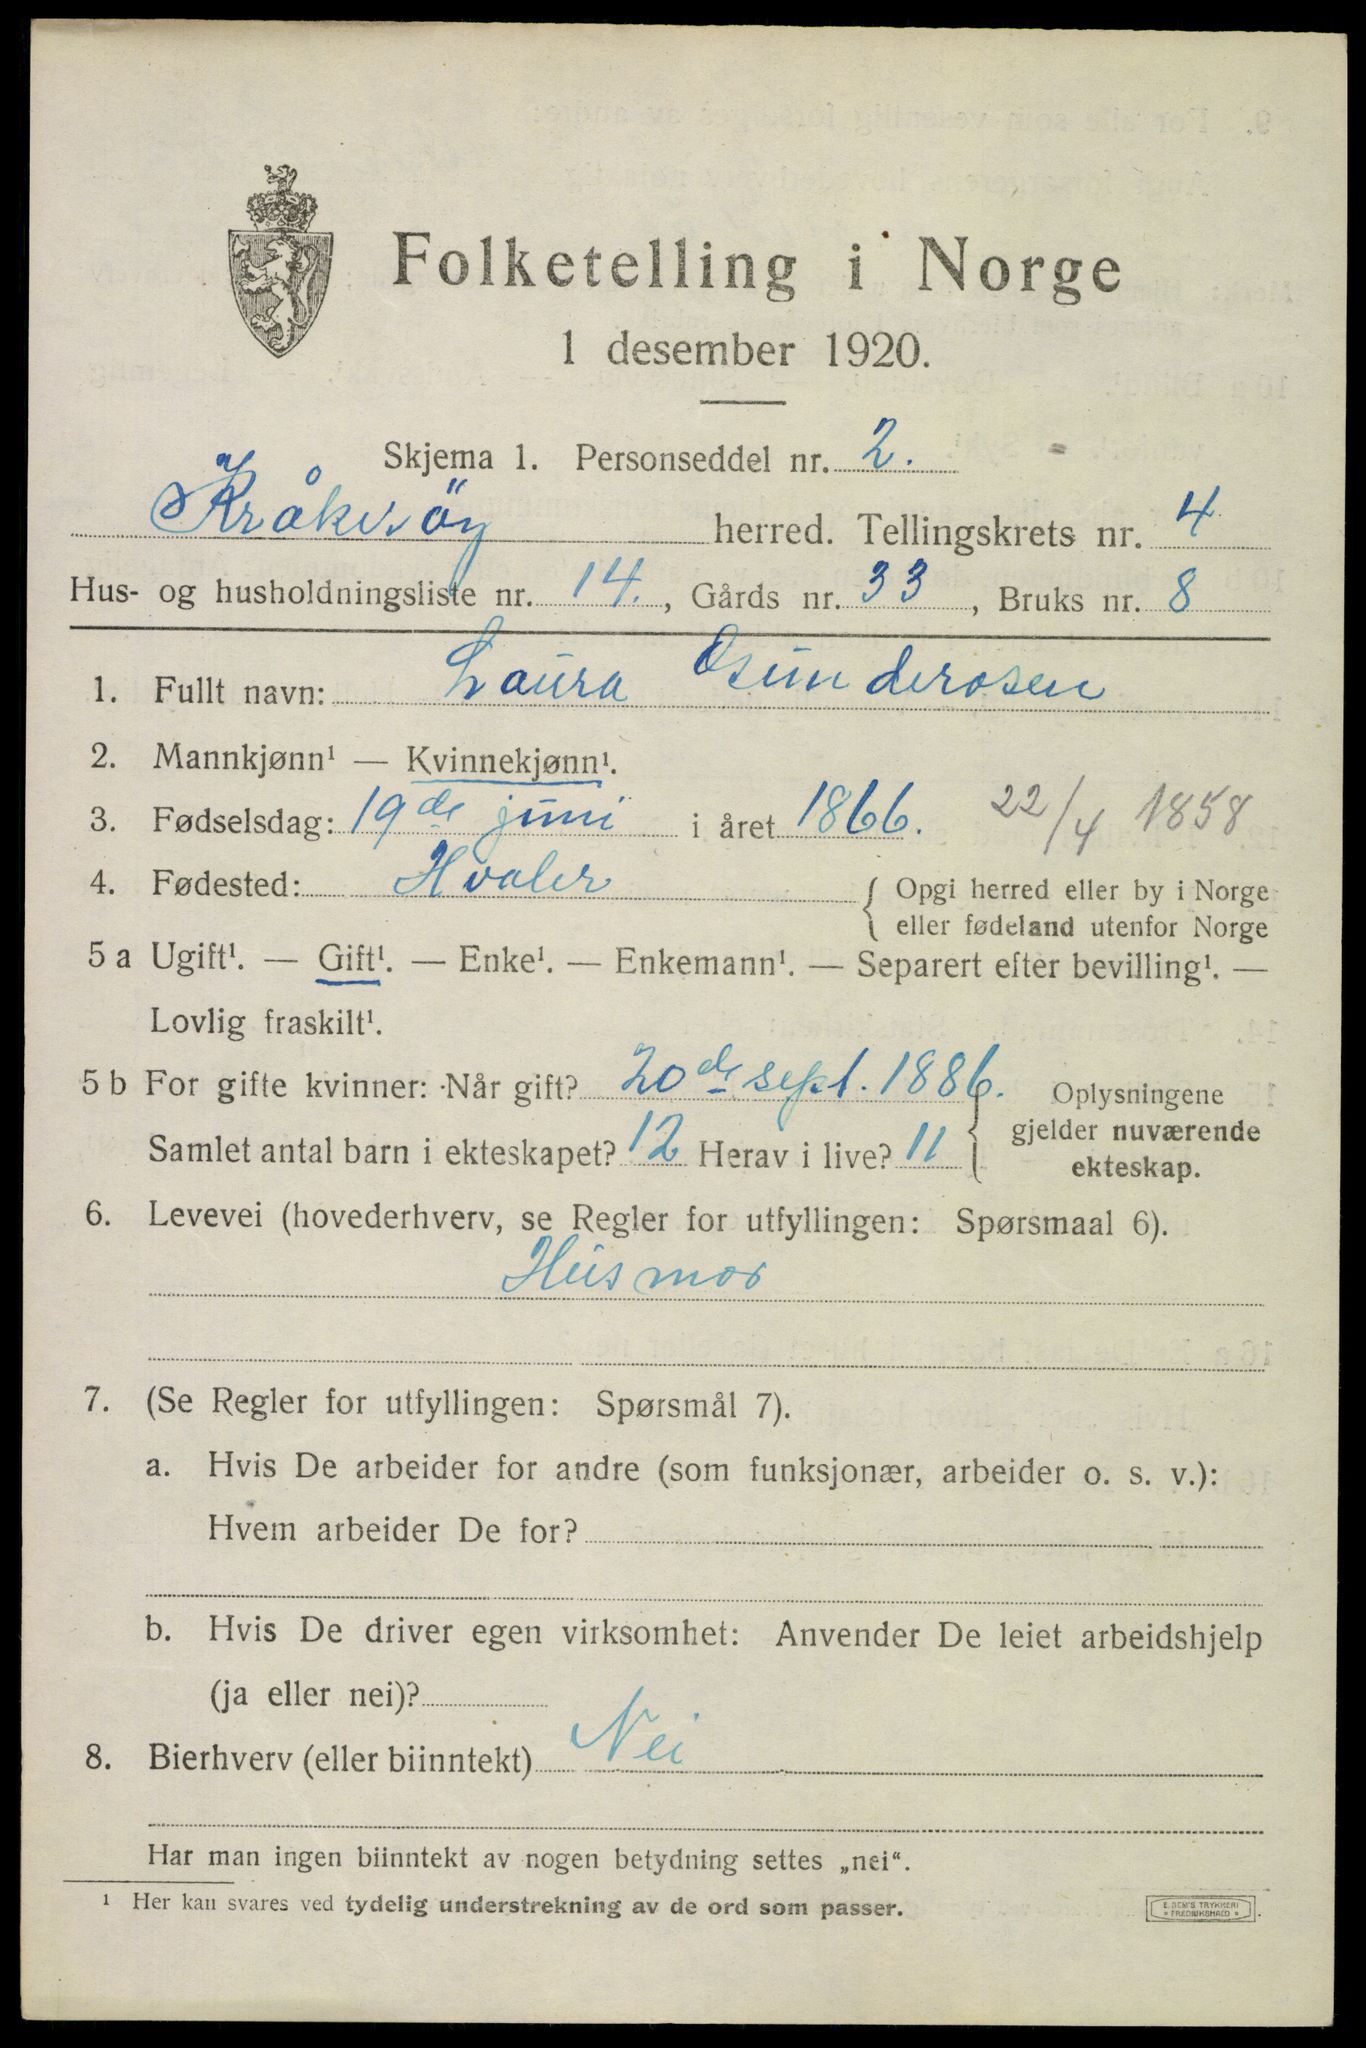 Folketelling i Norge
1 desember 1920.
Skjema 1. Personseddel nr. 2.
Kråkerøy herred. Tellingskrets nr. 4
Hus- og husholdningsliste nr. 14., Gårds nr. 33, Bruks nr. 8
1. Fullt navn: Laura
2. Mannkjønn¹ — Kvinnekjønn¹.
3. Fødselsdag: 19de juni i året 1866. 22/4 1858
4. Fødested: Hvaler { Opgi herred eller by i Norge
eller fødeland utenfor Norge
5 a Ugift¹. — Gift¹. — Enke¹. — Enkemann¹. — Separert efter bevilling¹. —
Lovlig fraskilt¹.
5 b For gifte kvinner: Når gift? 20de sept. 1886. Oplysningene
Samlet antal barn i ekteskapet? 12 Herav i live? 11 { gjelder nuværende
ekteskap.
6. Levevei (hovederhverv, se Regler for utfyllingen: Spørsmaal 6).
Husmor
7. (Se Regler for utfyllingen: Spørsmål 7).
a. Hvis De arbeider for andre (som funksjonær, arbeider o. s. v.):
Hvem arbeider De for?
b. Hvis De driver egen virksomhet: Anvender De leiet arbeidshjelp
(ja eller nei)?
8. Bierhverv (eller biinntekt) Nei
Har man ingen biinntekt av nogen betydning settes „nei“.
¹ Her kan svares ved tydelig understrekning av de ord som passer.
E. SEM'S TRYKKERI
* FREDRIKSHALD *